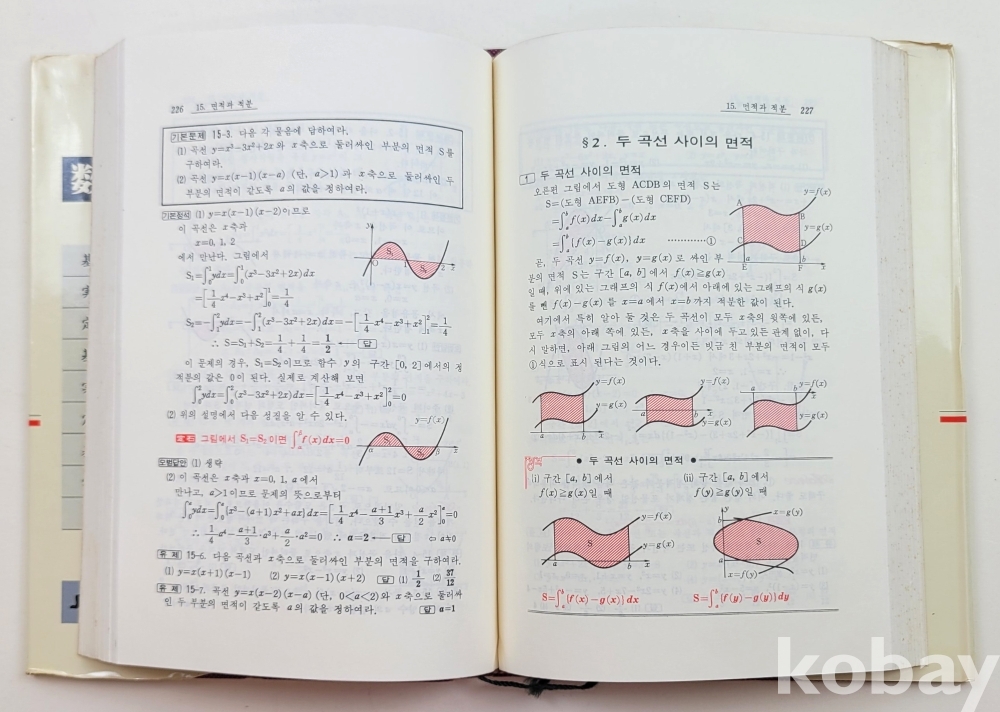 226 15. 면적과 적분
기본문제 15-3. 다음 각 물음에 답하여라.
(1) 곡선 y=x³-3x²+2x와 x축으로 둘러싸인 부분의 면적 S를
구하여라.
(2) 곡선 y=x(x-1)(x-a) (단, a>1)과 x축으로 둘러싸인 두
부분의 면적이 같도록 a의 값을 정하여라.
(1) y=x(x-1)(x-2)이므로
이 곡선은 x축과
x=0, 1, 2
에서 만난다. 그림에서
S₁=∫₀¹ydx=∫₀¹(x³-3x²+2x)dx
=[1/4 x⁴-x³+x²]₀¹=1/4
S₂=-∫₁²ydx=-∫₁²(x³-3x²+2x)dx=-[1/4 x⁴-x³+x²]₁²=1/4
∴ S=S₁+S₂=1/4+1/4=1/2 ← 답
y
S₁
O 1 S₂ 2 x
이 문제의 경우, S₁=S₂이므로 함수 y의 구간 [0, 2]에서의 정
적분의 값은 0이 된다. 실제로 계산해 보면
∫₀²ydx=∫₀²(x³-3x²+2x)dx=[1/4 x⁴-x³+x²]₀²=0
(2) 위의 설명에서 다음 성질을 알 수 있다.
그림에서 S₁=S₂이면 ∫αβ f(x)dx=0
y=f(x)
α S₁ S₂ β x
모범답안 (1) 생략
(2) 이 곡선은 x축과 x=0, 1, a에서
만나고, a>1이므로 문제의 뜻으로부터
∫₀ᵃydx=∫₀ᵃ{x³-(a+1)x²+ax}dx=[1/4 x⁴-a+1/3 x³+a/2 x²]₀ᵃ=0
∴ 1/4 a⁴-a+1/3·a³+a/2·a²=0 ∴ a=2 ← 답 ⇦ a≠0
유제 15-6. 다음 곡선과 x축으로 둘러싸인 부분의 면적을 구하여라.
(1) y=x(x+1)(x-1) (2) y=x(x-1)(x+2) 답 (1) 1/2 (2) 37/12
유제 15-7. 곡선 y=x(x-2)(x-a) (단, 0<a<2)와 x축으로 둘러싸
인 두 부분의 면적이 같도록 a의 값을 정하여라. 답 a=1
15. 면적과 적분 227
§2. 두 곡선 사이의 면적
1 두 곡선 사이의 면적
오른편 그림에서 도형 ACDB의 면적 S는
S=(도형 AEFB)-(도형 CEFD)
=∫ₐᵇf(x)dx-∫ₐᵇg(x)dx
=∫ₐᵇ{f(x)-g(x)}dx …………①
y=f(x)
A
B
y=g(x)
C D
a b
E F x
곧, 두 곡선 y=f(x), y=g(x)로 싸인 부
분의 면적 S는 구간 [a, b]에서 f(x)≧g(x)
일 때, 위에 있는 그래프의 식 f(x)에서 아래에 있는 그래프의 식 g(x)
를 뺀 f(x)-g(x)를 x=a에서 x=b까지 적분한 값이 된다.
여기에서 특히 알아 둘 것은 두 곡선이 모두 x축의 윗쪽에 있든,
모두 x축의 아래 쪽에 있든, x축을 사이에 두고 있든 관계 없이, 다
시 말하면, 아래 그림의 어느 경우이든 빗금 친 부분의 면적이 모두
①식으로 표시 된다는 것이다.
y=f(x)
y=g(x)
a b x
y=f(x)
a b x
y=g(x)
a b y=f(x)
x
y=g(x)
● 두 곡선 사이의 면적 ●
(i) 구간 [a, b]에서
f(x)≧g(x)일 때
(ii) 구간 [a, b]에서
f(y)≧g(y)일 때
y=f(x)
S
y=g(x)
a b x
y
x=g(y)
b
S
a
x=f(y)
x
S=∫ₐᵇ{f(x)-g(x)}dx
S=∫ₐᵇ{f(y)-g(y)}dy
kobay